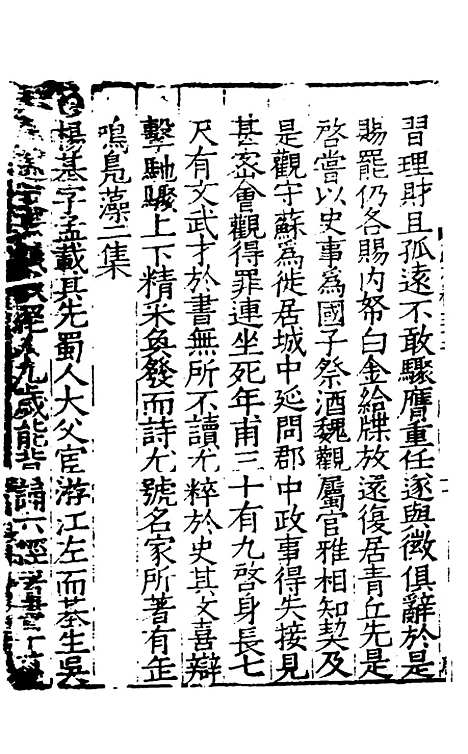 習理財且孤遠不敢驟膺重任遂與徽俱辭於是
賜罷仍各賜内帑白金給牒放還復居青丘先是
啓嘗以史事為國子祭酒魏觀屬官雅相知契及
是觀守蘇為徙居城中延問郡中政事得失接見
甚密會觀得罪連坐死年甫三十有九啓身長七
尺有文武才於書無所不讀尤粹於史其文喜辯
擊馳驟上下精采煥發而詩尤號名家所著有缶
鳴鳧藻二集
楊基字孟載其先蜀人大父宦游江左而基生吳
九歲能背誦六經